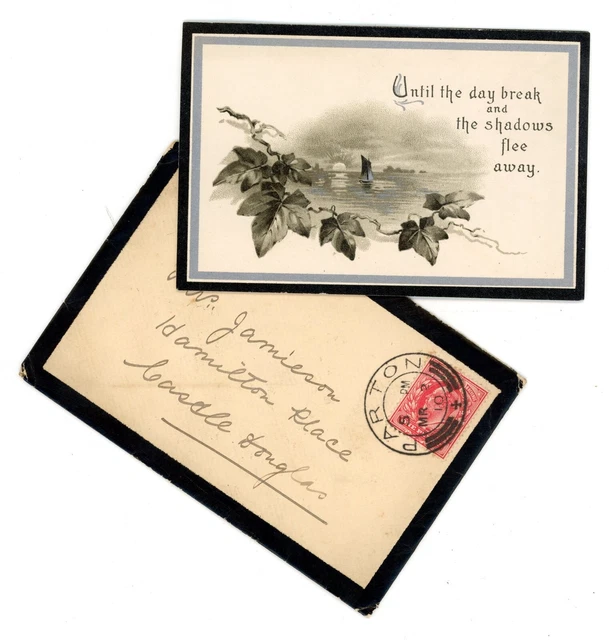 Until the day break
and
the shadows
flee
away.
Mrs. Jamieson
Hamilton Place
Castle Douglas
PARTON
5 PM
MR
10